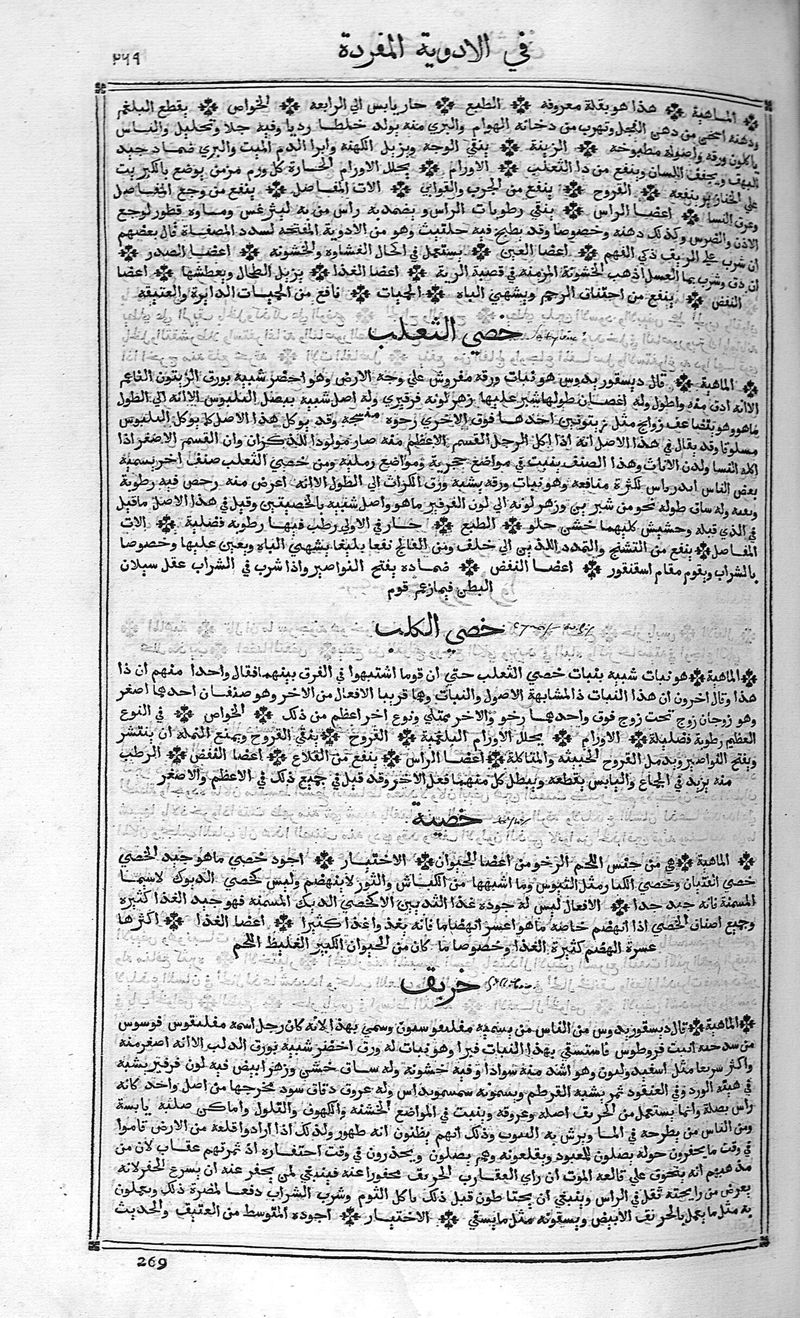 في الادوية المفردة
٢٦٩
الماهية هذا هو بقلة معروفه الطبع حار يابس الي الرابعه الخواص يقطع البلغم
ودهنه اخص من دهن الفجل وتهرب من دخانه الهوام والبري منه يولد خلطا رديا وفيه جلا وتحليل والناس
ياكلون ورقه واصوله مطبوخه الزينة ينقي الوجه ويزيل الكهنه واثرا الدم الميت والبري ضماد جيد
للبهق ويجفف اللسان وينفع من دا الثعلب الاورام يحلل الاورام الحارة كل ورم مزمن يوضع بالكبريت
علي الخنازير ينفعه القروح ينفع من الجرب والقوابي الات المفاصل ينفع من وجع المفاصل
وعرق النسا اعضا الراس ينقي رطوبات الراس ويضمد به راس من به ليثرغس وماوه قطور لوجع
الاذن والضرس وكذلك دهنه وخصوصا وقد طبخ فيه حلتيت وهو من الادوية المفتحه لسدد المصفاة قال بعضهم
ان شرب علي الريق ذكي الفهم اعضا العين يستعمل في اكحال الغشاوه والخشونه اعضا الصدر
ان دق وشرب بما العسل اذهب الخشونة المزمنه في قصبة الرية اعضا الغذا يزيل الطحال ويعطش اعضا
النفض ينفع من اختناق الرحم ويشهي الباه الحميات نافع من الحميات الدايرة والعتيقه
خصي الثعلب
الماهية قال ديسقوريدوس هو نبات ورقه مفروش علي وجه الارض وهو اخضر شبيه بورق الزيتون الناعم
الاانه ادق منه واطول وله اغصان طولها شبر عليها زهر لونه فرفيري وله اصل شبيه ببصل البلبوس الاانه الي الطول
ماهو وهو يتضاعف زوايج مثل زيتونتين احدهما فوق الاخري رخوه متشنجه وقد يوكل هذا الاصل كما يوكل البلبوس
مسلوقا وقد يقال في هذا الاصل انه اذا اكل الرجل القسم الاعظم منه صار مولودا للذكران وان القسم الاصغر اذا
اكله النسا ولدن الاناث وهذا الصنف ينبت في مواضع حجرية ومواضع رملية ومن خصي الثعلب صنف اخر يسميه
بعض الناس اندرياس لكثرة منافعه وهو نبات ورقه يشبه ورق الكراث الي الطول الاانه اعرض منه رخص فيه رطوبة
وبعه وله ساق طوله نحو من شبرين وزهر لونه الي لون الفرفير ماهو واصل شبيه بالخصيتين وقيل في هذا الاصل ماقيل
في الذي قبله وحشيش كليهما خشن حلو الطبع حار في الاولي رطب فيها رطوبه فضلية الات
المفاصل ينفع من التشنج والتمدد اللذين الي خلف ومن الفالج نفعا بليغا يشهي الباه ويعين عليها وخصوصا
بالشراب ويقوم مقام اسقنقور اعضا النفض ضماده يفتح النواصير واذا شرب في الشراب عقل سيلان
البطن فيما زعم قوم
خصي الكلب
الماهية هو نبات شبيه بنبات خصي الثعلب حتي ان قوما اشتبهوا في الفرق بينهما فقال واحدا منهم ان ذا
هذا وقال اخرون ان هذا النبات ذا المشابهة الاصول والنبات وهما قريبا الافعال من الاخر وهو صنفان احدها اصغر
وهو زوجان زوج تحت زوج فوق واحدهما رخو والاخر ممتلي ونوع اخر اعظم من ذلك الخواص في النوع
العظيم رطوبة فضلية الاورام يحلل الاورام البلغمية القروح ينقي القروح ويمنع النمله ان ينتشر
ويفتح النواصير ويدمل القروح الخبيثه والمتاكلة اعضا الراس ينفع من القلاع اعضا النفض الرطب
منه يزيد في الجماع واليابس يقطعه ويبطل كل منهما فعل الاخر وقد قيل في جميع ذلك في الاعظم والاصغر
خصية
الماهية هي من جنس اللحم الرخو من اعضا الحيوان الاختيار اجود خصي ماهو جيد الخصي
خصي الفتيان وخصي الكبا ومثل التيوس وما اشبهها من الكباش والثور لا ينهضم وليس كخصي الديوك لاسيما
المسمنة فانه جيد جدا الافعال ليس له جودة غذا الثديين الا كخصي الديك المسمنه فهو جيد الغذا كثيره
وجميع اصناف الخصي اذا انهضم خاصه ماهو اعسر انهضاما فانه يغذو غذا كثيرا اعضا الغذا اكثرها
عسرة الهضم كثيرة الغذا وخصوصا ما كان من الحيوان الكبير الغليظ اللحم
خربق
الماهية قال ديسقوريدوس من الناس من يسميه مغليبغوسيون وسمي بهذا لانه كان رجل اسمه مغلبغوس فوسوس
من سدحنه انبت فروطوس فاستسقي بهذا النبات فبرا وهو نبات له ورق اخضر شبيه بورق الدلب الاانه اصغر منه
واكثر سريعا مثل اسفيدوليون وهو اشد منه سوادا وفيه خشونه وله ساق خشن وزهر ابيض فيه لون فرفير يشبه
في هيئه الورد وفي العنقود ثمر يشبه القرطم ويسمونه سمسمويداس وله عروق دقاق سود مخرجها من اصل واحد كانه
راس بصلة وانما يستعمل من الخريف اصله وعروقه وينبت في المواضع الخشنه والكهوف والتلول واماكن صلبه يابسة
ومن الناس من يطرحه في الما ويرش به البيوت وذلك انهم يظنون انه طهور ولذلك اذا ارادوا قلعه من الارض قاموا
في وقت ما يحفرون حوله يصلون للمعبود ويقلعونه وهم يصلون ويحذرون في وقت احتفاره اذ تمر بهم عقاب لان من
مذهبهم انه يتخوف علي قالعه الموت ان راي العقاب الخريف محفورا عنه فينبغي لمن يحفر عنه ان يسرع الحفر لانه
يعرض من رايحته ثقل في الراس وينبغي ان يحتاطون قبل ذلك باكل الثوم وشرب الشراب دفعا لمضرة ذلك ويعملون
به مثل ما يعمل بالخربق الابيض ويسقونه مثل مايسقي الاختيار اجوده المتوسط من العتيق والحديث
269